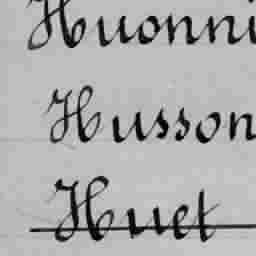 Huonni
Husson
Huet